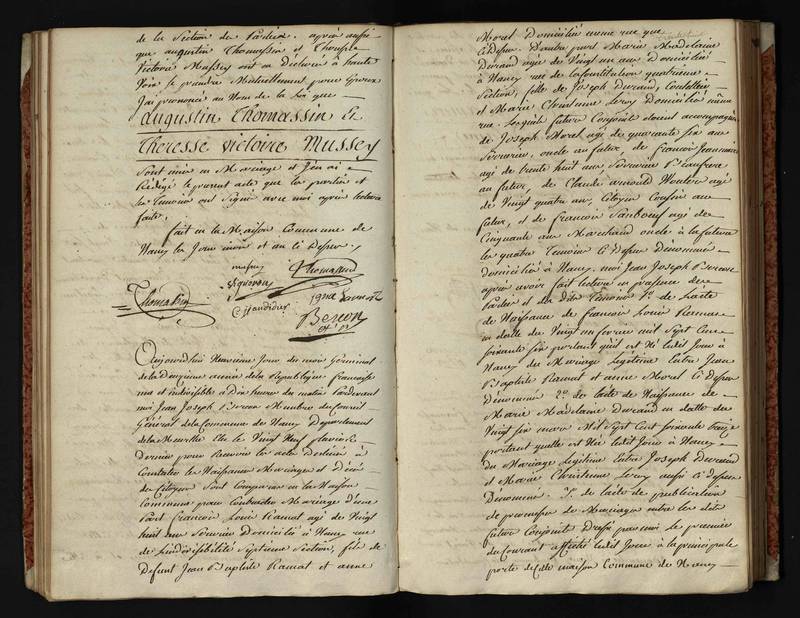 de la Section de Pardieu. après aussi
que augustin Thomassin et Therese
Victoire Mussey ont eu Declaré à haute
Voix se prendre Mutuellement pour Epoux
J'ai prononcé au Nom de la Loi que
augustin Thomassin Et
Theresse victoire Mussey
Sont unis en Mariage et j'en ai
Rédigé le present acte que les parties et
les temoins ont Signé avec moi après lecture
faite.
fait en la Maison Commune de
Nancy les Jour mois et an ci Dessus.
mussey
Thomassin
Thomassin
C Handidier
Beron
Aujourd'hui Neuvieme Jour du mois Germinal
de la Deuxieme année de la Republique francaise
une et indivisible à Dix heures du matin Pardevant
moi Jean Joseph Beron Membre du Conseil
Général de la Commune de Nancy Departement
de la Meurthe Elu le Vingt Neuf
Dernier pour Recevoir les actes Destinés à
Constater les Naissances Mariages et Décès
des Citoyens Sont Comparus en la Maison
Commune pour Contracter Mariage d'une
Part francois Louis Ramat agé de Vingt
huit ans Serrurier Domicilié à Nancy rue
de l'indivisibilité Septieme Section, fils de
Defunt Jean Baptiste Ramat et anne
Morel Domiciliée même rue que
Ci Dessus. D'autre part Marie Madelaine
Durand agée de Vingt un ans Domiciliée
à Nancy rue de la Constitution quatrieme
Section, fille de Joseph Durand, Coutellier
et Marie Christienne Leroy Domiciliés même
rue. Lesquels futurs Conjoints étoient accompagnés
de Joseph Morel agé de quarante six ans
Serrurier, oncle au futur, de francois
agé de trente huit ans Serrurier
au futur, de Claude arnould
de Vingt quatre ans, Citoyen Cousin au
futur, et de francois agé de
Cinquante ans Marchand oncle à la future
les quatre Temoins Ci Dessus Dénommés
domiciliés à Nancy. moi Jean Joseph Beron
après avoir fait lecture en presence des
Parties et des Dits Temoins 1.° de l'acte
de Naissance de francois Louis Ramat
en datte du Vingt un fevrier mil Sept Cent
soixante six portant qu'il est Né ledit Jour à
Nancy du Mariage Legitime entre Jean
Baptiste Ramat et anne Morel Ci Dessus
Dénommés 2.° de l'acte de Naissance de
Marie Madelaine Durand en datte du
Vingt six mars Mil Sept Cent soixante
portant qu'elle est Née ledit Jour à Nancy
du Mariage Legitime entre Joseph Durand
et Marie Christienne Leroy aussi Ci Dessus
Dénommés. 3.° de l'acte de publication
de promesse de Mariage entre les dits
futurs Conjoints Dressé par moi le premier
du Courant affiché ledit Jour à la principale
porte de la maison Commune de Nancy